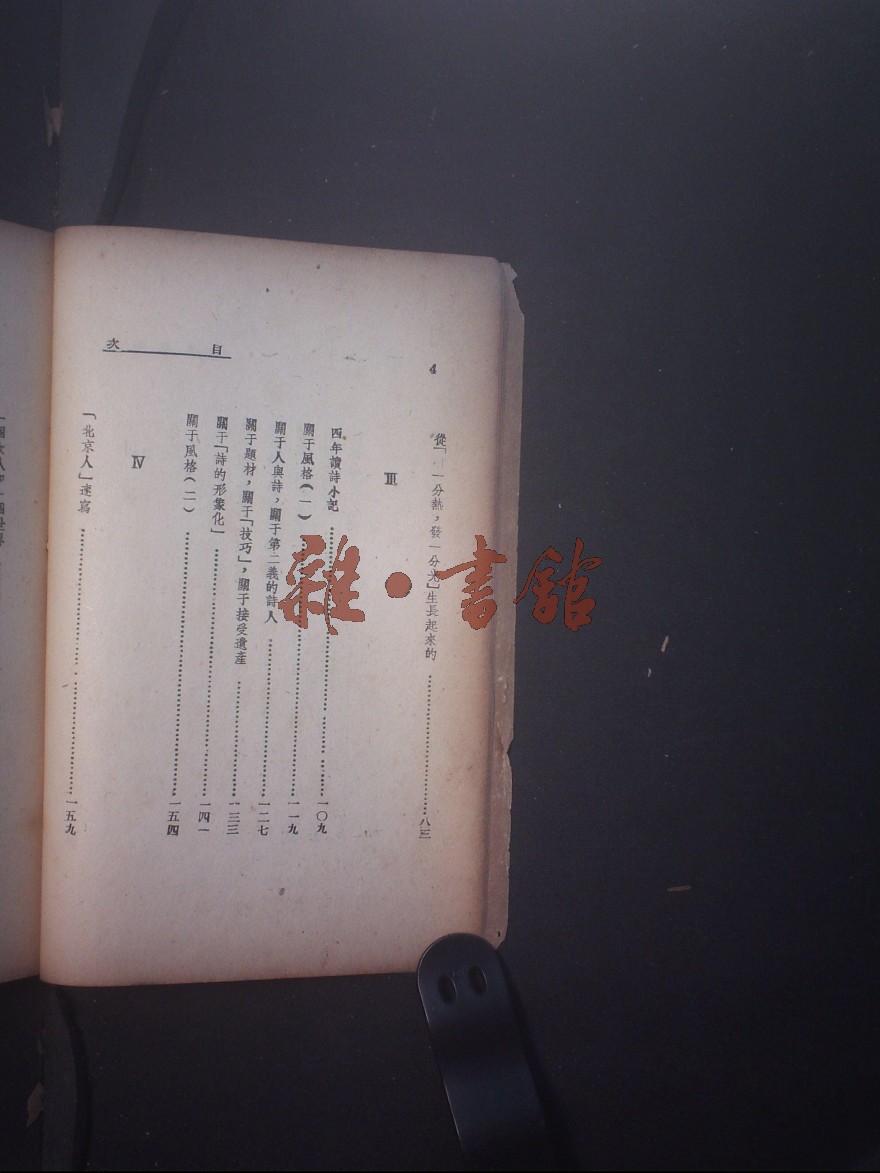 目次
4
從「一分熱，發一分光」生長起來的……八三
Ⅲ
四年讀詩小記……一〇九
關于風格（一）……一一九
關于人與詩，關于第二義的詩人……一二七
關于題材，關于「技巧」，關于接受遺產……一三三
關于「詩的形象化」……一四一
關于風格（二）……一五四
Ⅳ
「北京人」速寫……一五九
雜·書館